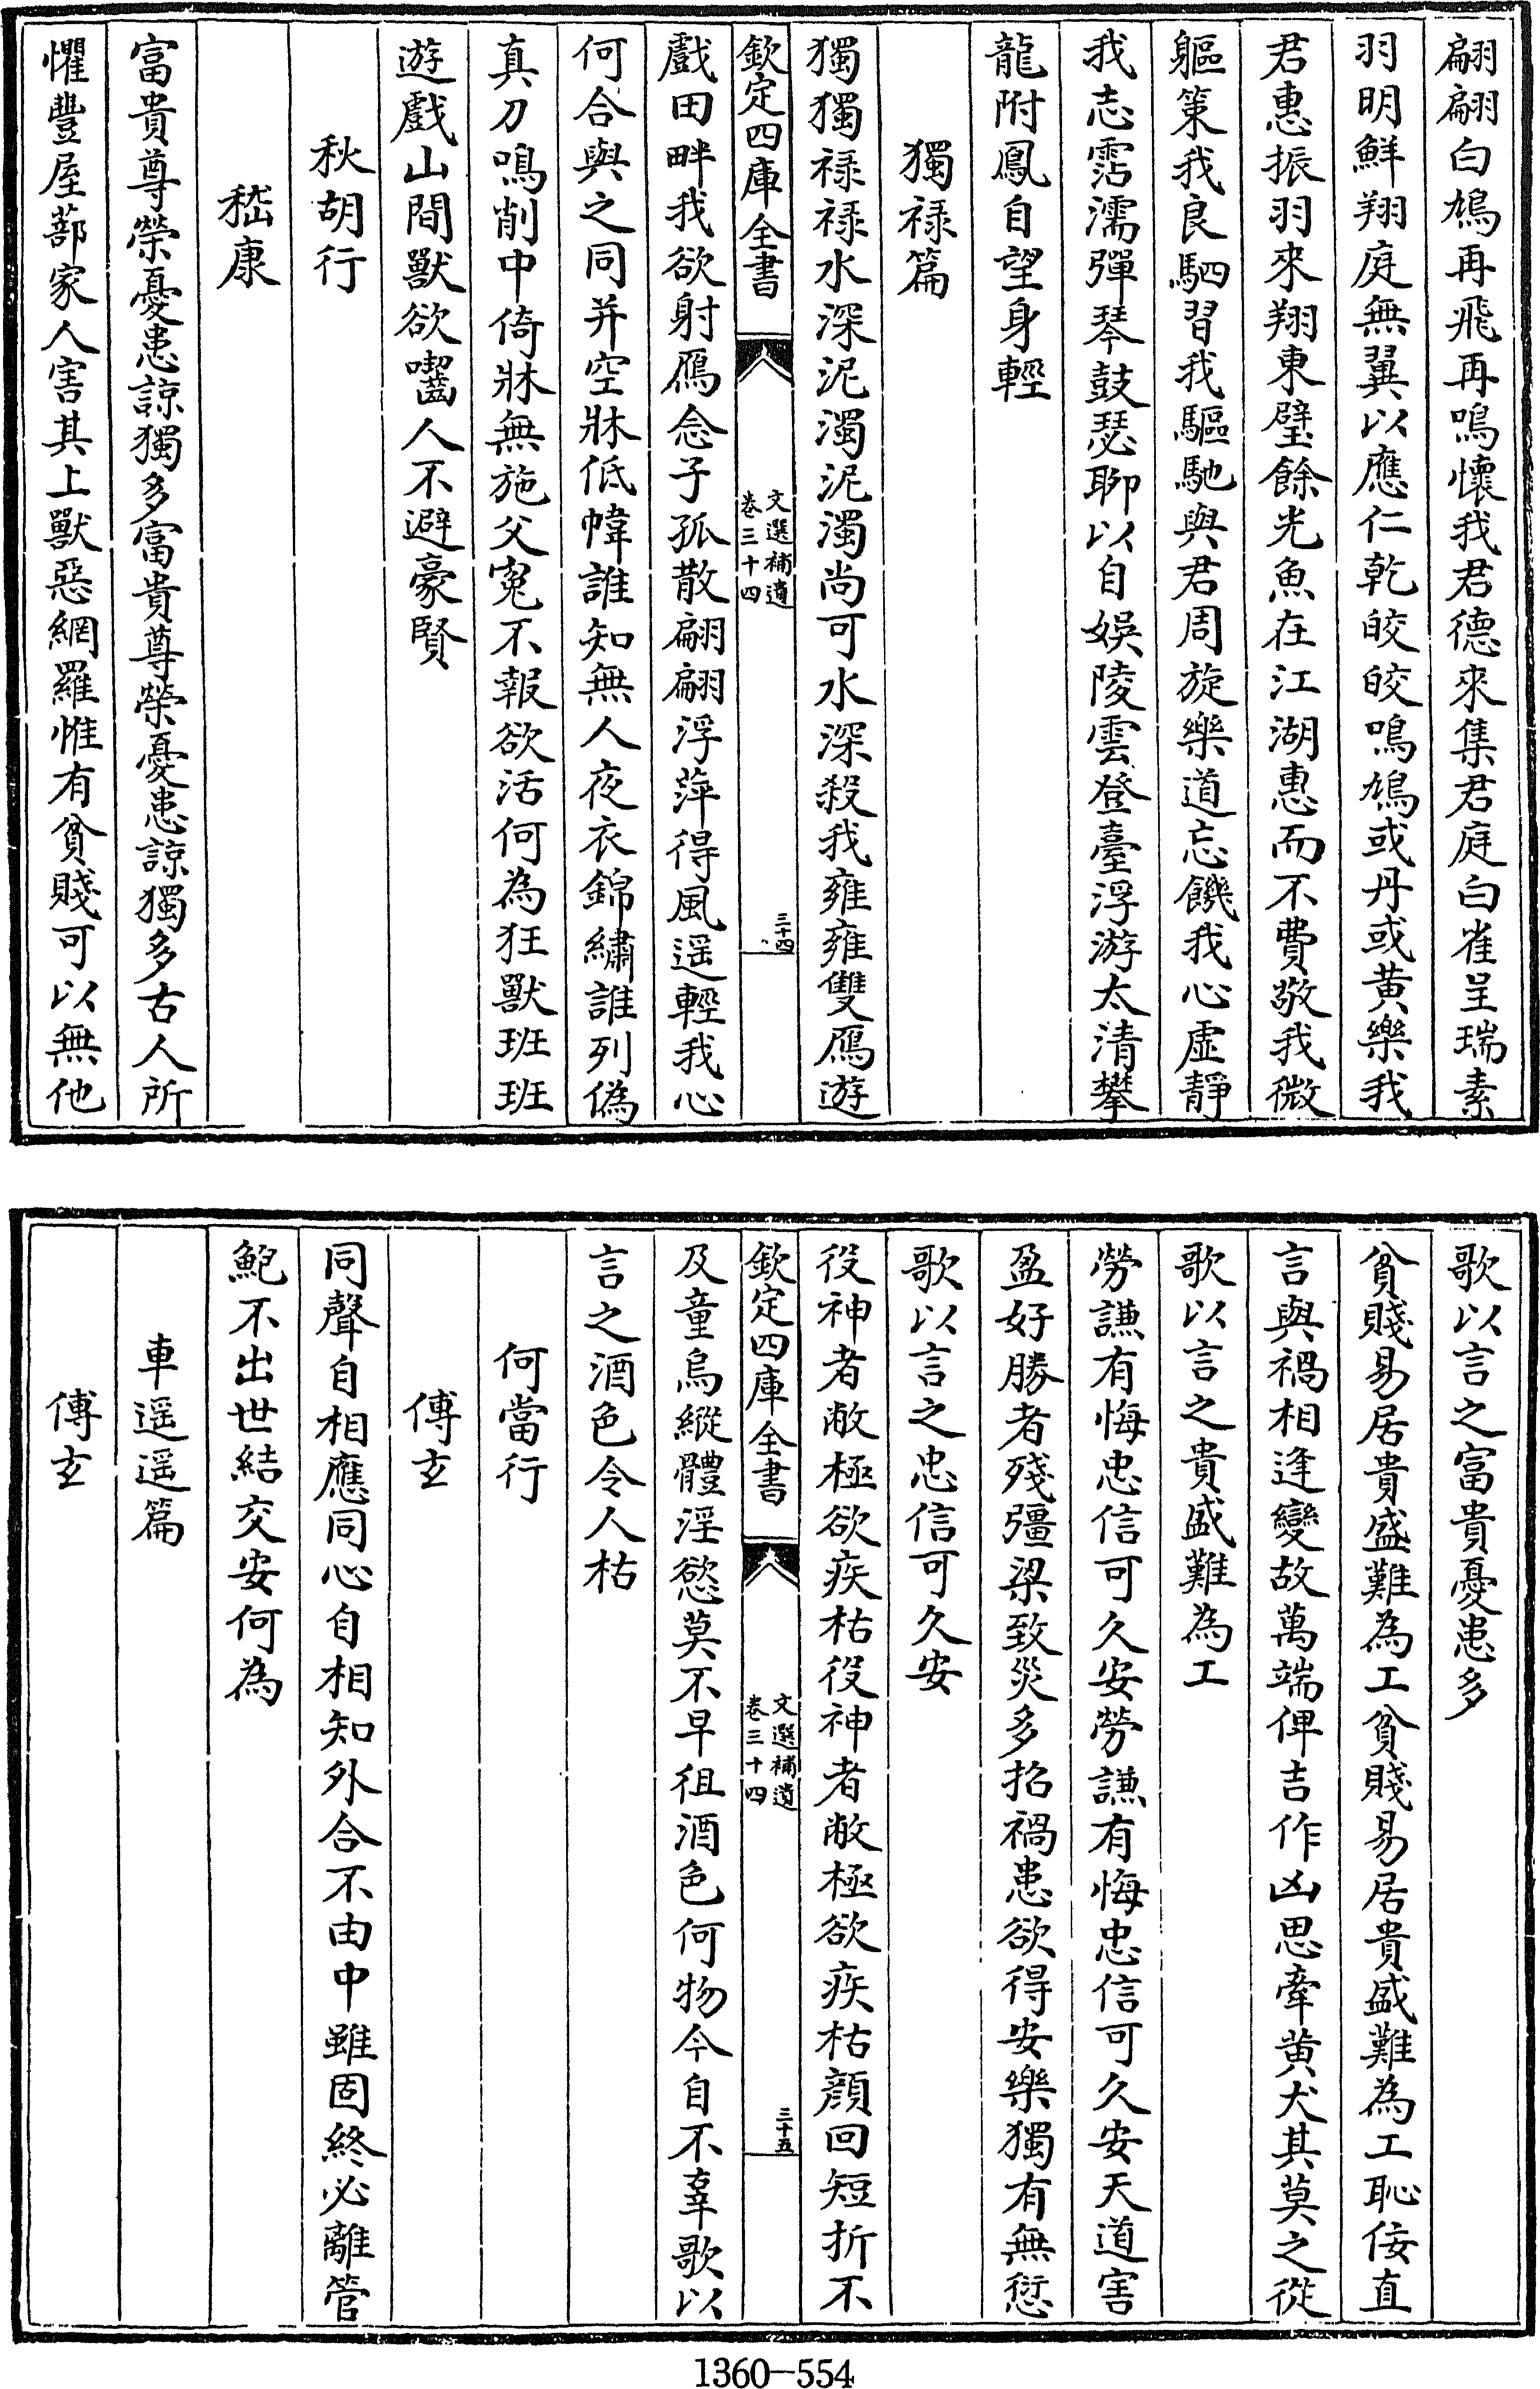 翩翩白鳩再飛再鳴懷我君德來集君庭白雀呈瑞素
羽明鮮翔庭無翼以應仁乾皎皎鳴鳩或丹或黃樂我
君惠振羽來翔東壁餘光魚在江湖惠而不費敬我微
軀策我良駟習我驅馳與君周旋樂道忘饑我心虛靜
我志霑濡彈琴鼓瑟聊以自娛陵雲登臺浮游太清攀
龍附鳳自望身輕
獨祿篇
獨獨祿祿水深泥濁泥濁尚可水深殺我雍雍雙鴈遊
欽定四庫全書
文選補遺
卷三十四
三十四
戲田畔我欲射鴈念子孤散翩翩浮萍得風遥輕我心
何合與之同并空牀低幃誰知無人夜衣錦繡誰列偽
真刀鳴削中倚牀無施父寃不報欲活何為狂獸班班
遊戲山間獸欲嚙人不避豪賢
秋胡行
嵇康
富貴尊榮憂患諒獨多富貴尊榮憂患諒獨多古人所
懼豐屋蔀家人害其上獸惡網羅惟有貧賤可以無他
歌以言之富貴憂患多
貧賤易居貴盛難為工貧賤易居貴盛難為工恥佞直
言與禍相逢變故萬端俾吉作凶思牽黃犬其莫之從
歌以言之貴盛難為工
勞謙有悔忠信可久安勞謙有悔忠信可久安天道害
盈好勝者殘彊梁致災多招禍患欲得安樂獨有無愆
歌以言之忠信可久安
役神者敝極欲疾枯役神者敝極欲疾枯顏回短折不
欽定四庫全書
文選補遺
卷三十四
三十五
及童烏縱體淫慾莫不早徂酒色何物今自不辜歌以
言之酒色令人枯
何當行
傅玄
同聲自相應同心自相知外合不由中雖固終必離管
鮑不出世結交安何為
車遥遥篇
傅玄
1360-554